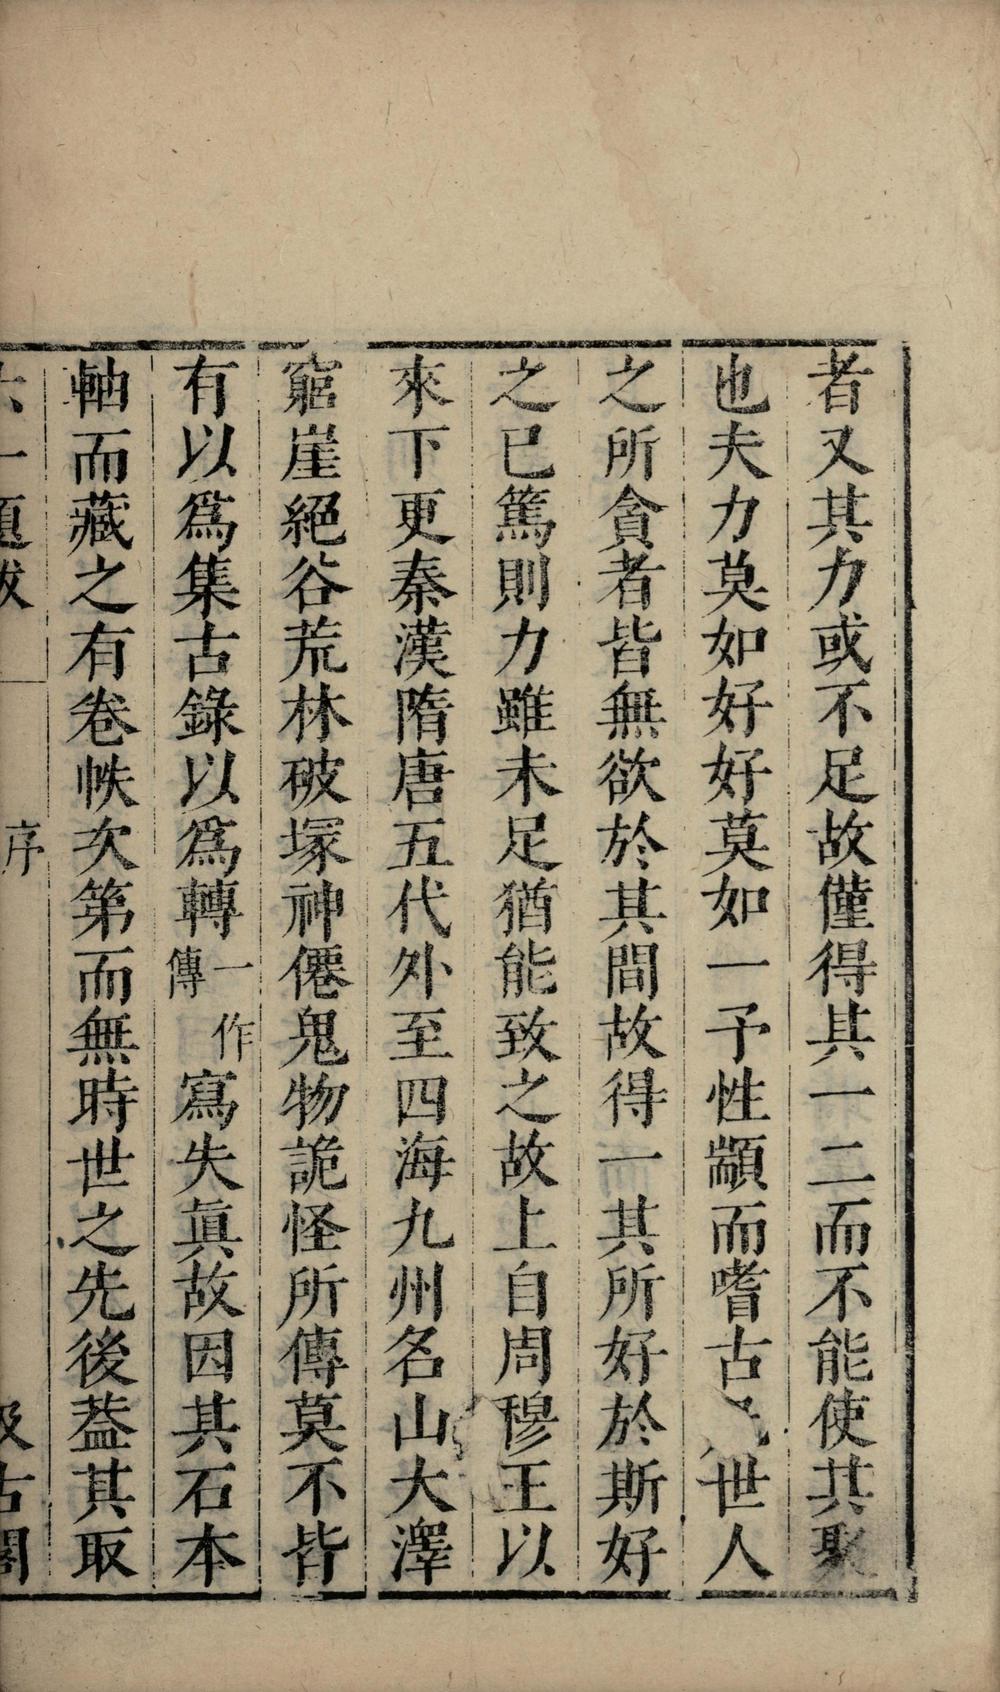 者又其力或不足故僅得其一二而不能使其聚
也夫力莫如好好莫如一予性顓而嗜古 世人
之所貪者皆無欲於其間故得一其所好於斯好
之已篤則力雖未足猶能致之故上自周穆王以
來下更秦漢隋唐五代外至四海九州名山大澤
窮崖絕谷荒林破塚神僊鬼物詭怪所傳莫不皆
有以爲集古錄以爲轉一作傳寫失眞故因其石本
軸而藏之有卷帙次第而無時世之先後葢其取
六一題跋 序 汲古閣